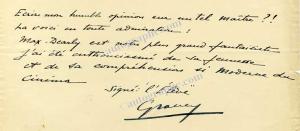 Ecrire mon humble opinion sur un tel Maître ?!
la voici en toute admiration !
Max-Dearly est notre plus grand fantaisiste
j'ai été enthousiasmé de sa jeunesse
et de sa compréhension si moderne du
Cinéma
Signé : l'élève
Gravey